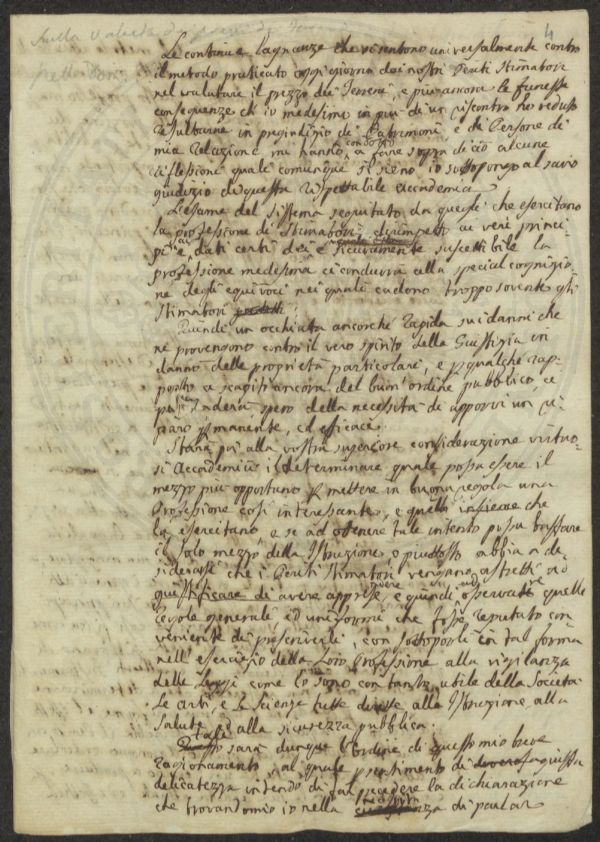 Sulla Valuta de
4
Le continue lagnanze che si sentono universalmente contro
il metodo praticato oggi giorno dai nostri Periti Stimatori
nel valutare il prezzo dei Terreni, e più ancora le funeste
conseguenze ch' io medesimo in più di un riscontro ho veduto
resultarne in pregiudizio di Patrimoni e di Persone di
mia relazione mi hanno condotto a fare sopra di ciò alcune
riflessioni quali comunque si sieno io sottopongo al savio
giudizio di questa rispettabile accademia
L'esame del sistema seguitato da quegli che esercitano
la professione di Stimatori dirimpetto ai veri princi-
pi, e ai dati certi dei è sicuramente suscettibile la
professione medesima ci condurrà alla special cognizio
ne degli equivoci nei quali cadono troppo sovente gli
Stimatori predetti
Quindi un occhiata ancorchè rapida sui danni che
ne provengono contro il vero spirito della Giustizia in
danno delle proprietà particolari, e p qualche rap-
porto a scapiti ancora del buon' ordine pubblico, ci
persuaderà spero della necessità di apporvi un ri
paro permanente, ed efficace.
Starà poi alla vostra superiore considerazione virtuo-
si Accademici il determinare quale possa essere il
mezzo più opportuno p mettere in buona regola una
Professione così interessante, e quelli insieme che
la esercitano, e se ad ottenere tale intento possa bastare
il solo mezzo della Istruzione, o piuttosto abbia a de-
siderarsi che i Periti Stimatori vengano astretti ad
giustificare di avere apprese, e quindi osservate quelle
regole generali, ed uniformi che fosse reputato con
veniente di prescriverli, con sottoporli in tal forma
nell' esercizio della loro Professione alla vigilanza
delle Leggi come lo sono con tanto utile della Società
Le arti, e le Scienze tutte dirette alla Istruzione, alla
Salute, ed alla sicurezza pubblica.
Tale sarà dunque l' ordine di questo mio breve
ragionamento, al quale p sentimento di giusta
delicatezza intendo di far precedere la dichiarazione
che trovandomi io nella necessità di parlar